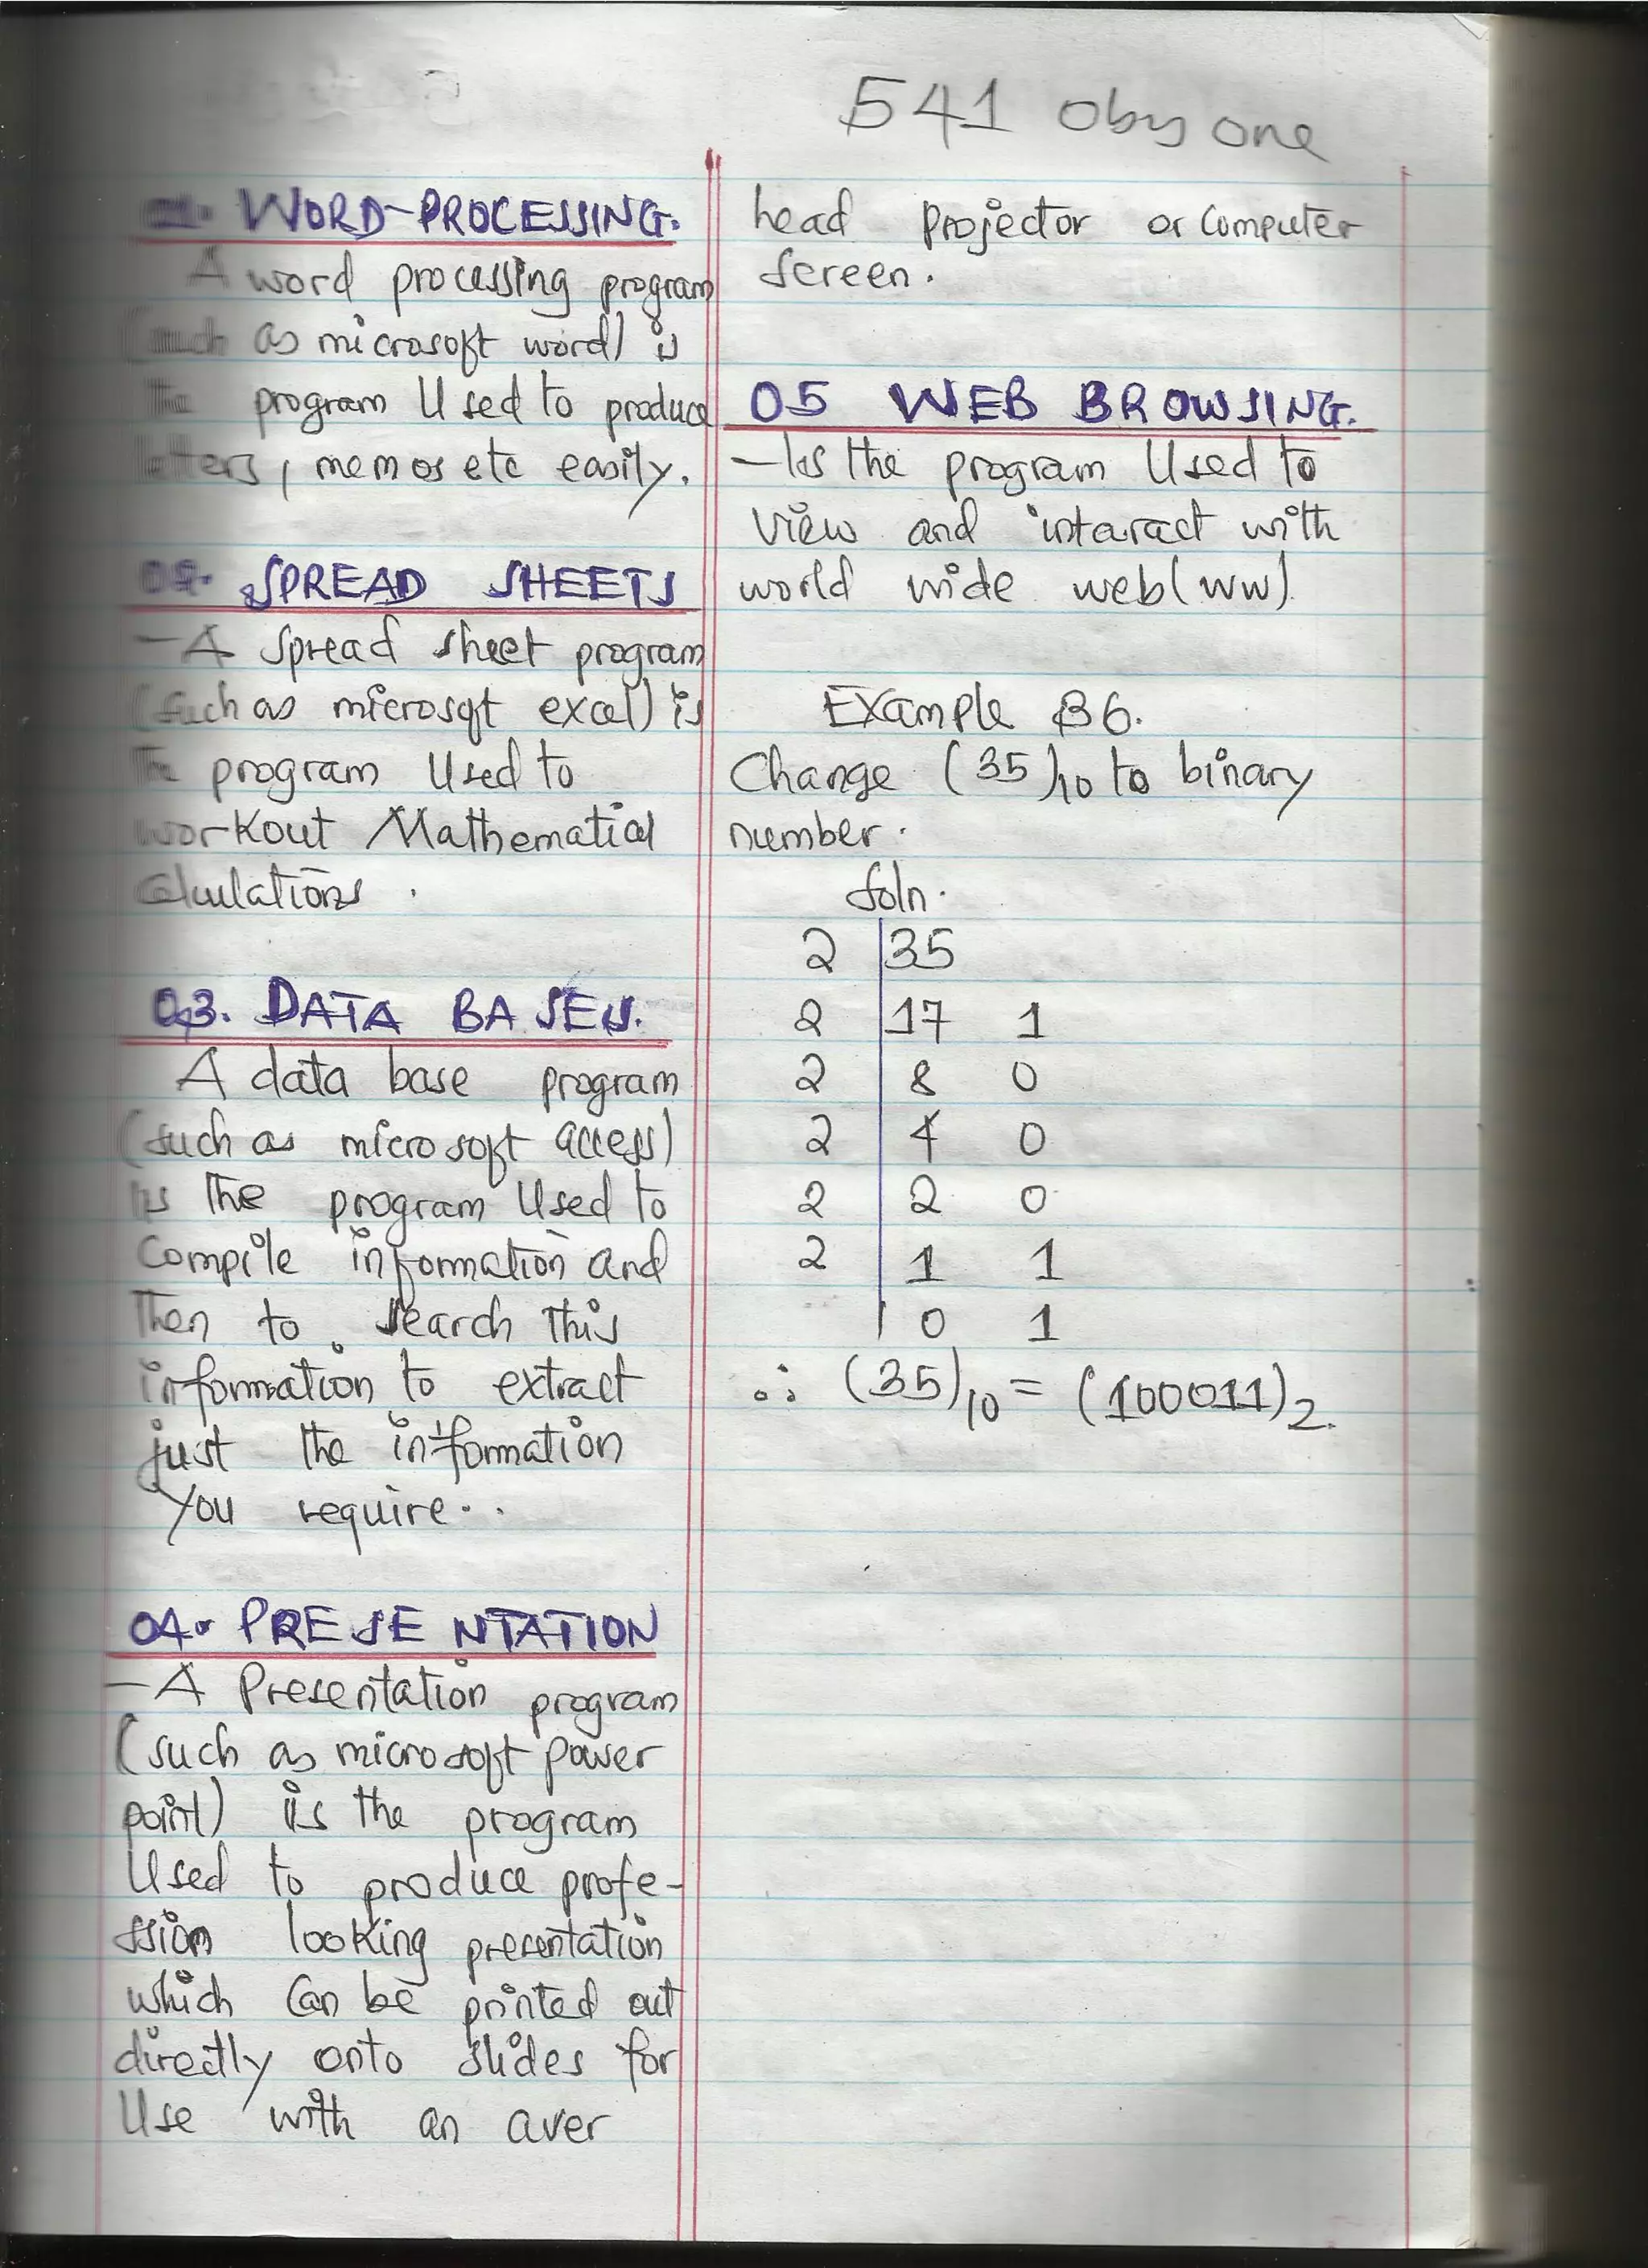 541 Oby one
01. WORD-PROCESSING.
A word processing program
(such as microsoft word) is
the program Used to produce
letters, memos etc easily.
02. SPREAD SHEETS
- A Spread sheet program
(such as microsoft excel) is
The program Used to
workout Mathematical
calculations.
03. DATA BASES.
A data base program
(such as microsoft access)
is the program Used to
Compile information and
Then to search this
information to extract
just the information
You require..
04. PRESENTATION
- A Presentation program
(such as microsoft power
point) is the program
Used to produce profe-
ssion looking presentation
which Can be printed out
directly onto slides for
Use with an over
head Projector or Computer
Screen.
05 WEB BROWSING.
- Is the program Used to
View and interact with
world wide web (ww).
Example 36.
Change (35)10 to binary
number.
Soln.
2 35
2 17 1
2 8 0
2 4 0
2 2 0
2 1 1
0 1
∴ (35)10 = (100011)2.